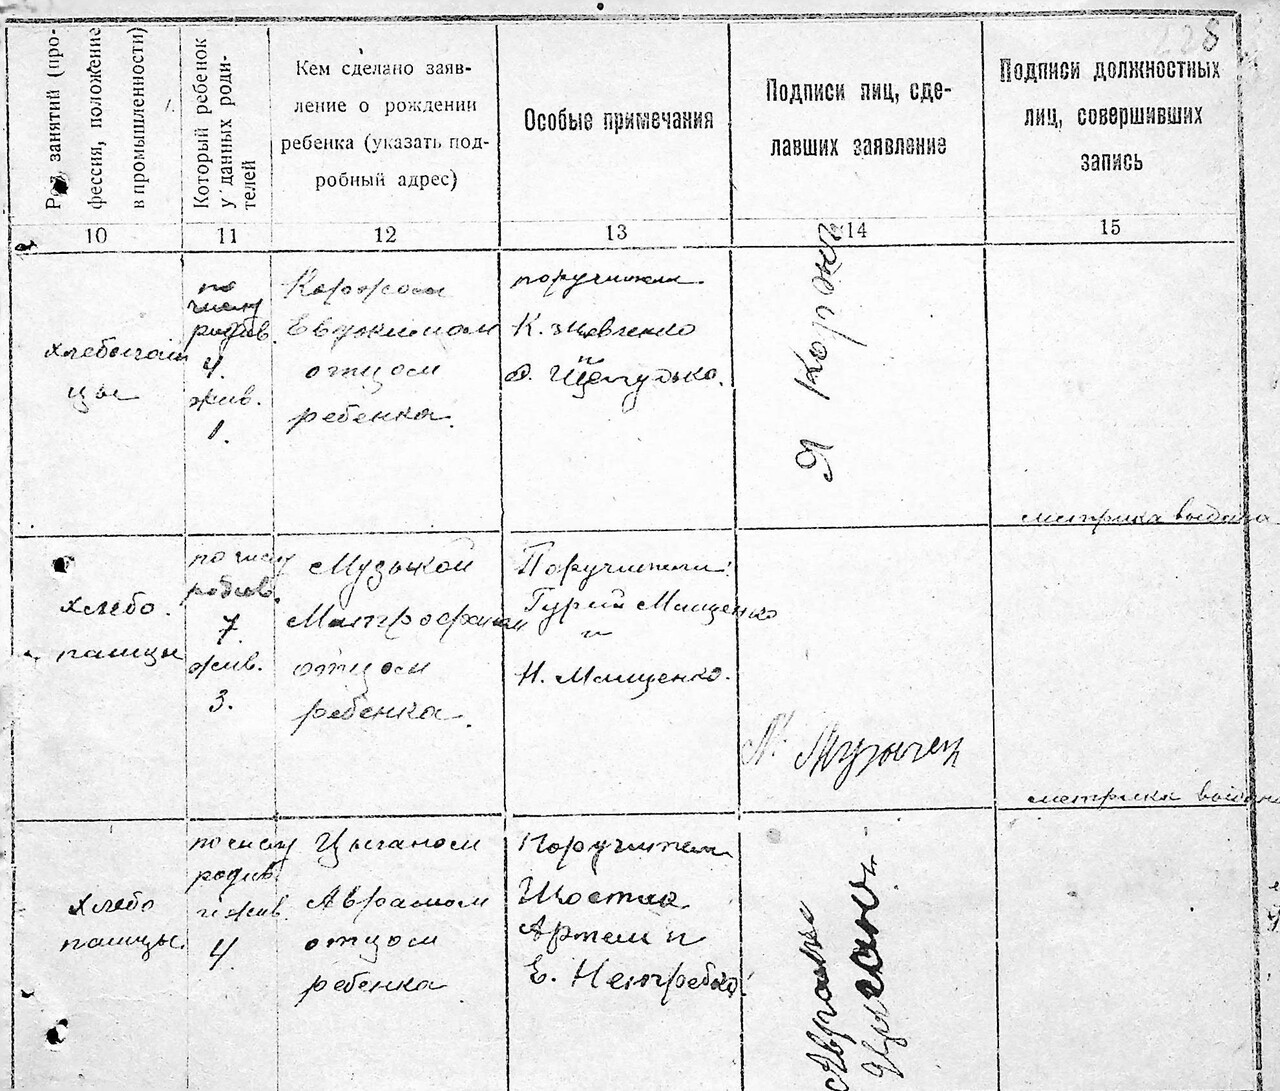 228
Род занятий (про-
фессия, положение
в промышленности)
Который ребенок
у данных роди-
телей
Кем сделано заяв-
ление о рождении
ребенка (указать под-
робный адрес)
Особые примечания
Подписи лиц, сде-
лавших заявление
Подписи должностных
лиц, совершивших
запись
10
11
12
13
14
15
хлебопаш
цы
по
числу
родив.
4.
жив.
1.
Коржом
Евдокимом
отцом
ребенка.
поручители
К. Зновленко
и
Я Корж
метрика выдана
хлебо.
пашцы
по числу
родив.
7.
жив.
3.
Музыкой
Митрофаном
отцом
ребенка.
Поручители:
Гурий Мищенко
и
Н. Мищенко.
М.
метрика выдана
хлебо
пашцы.
по числу
родив.
и жив.
4
Цыганом
Аврамом
отцом
ребенка
Поручители
Шостак
Артем и
Е. Нетребко.
Аврам
Цыган